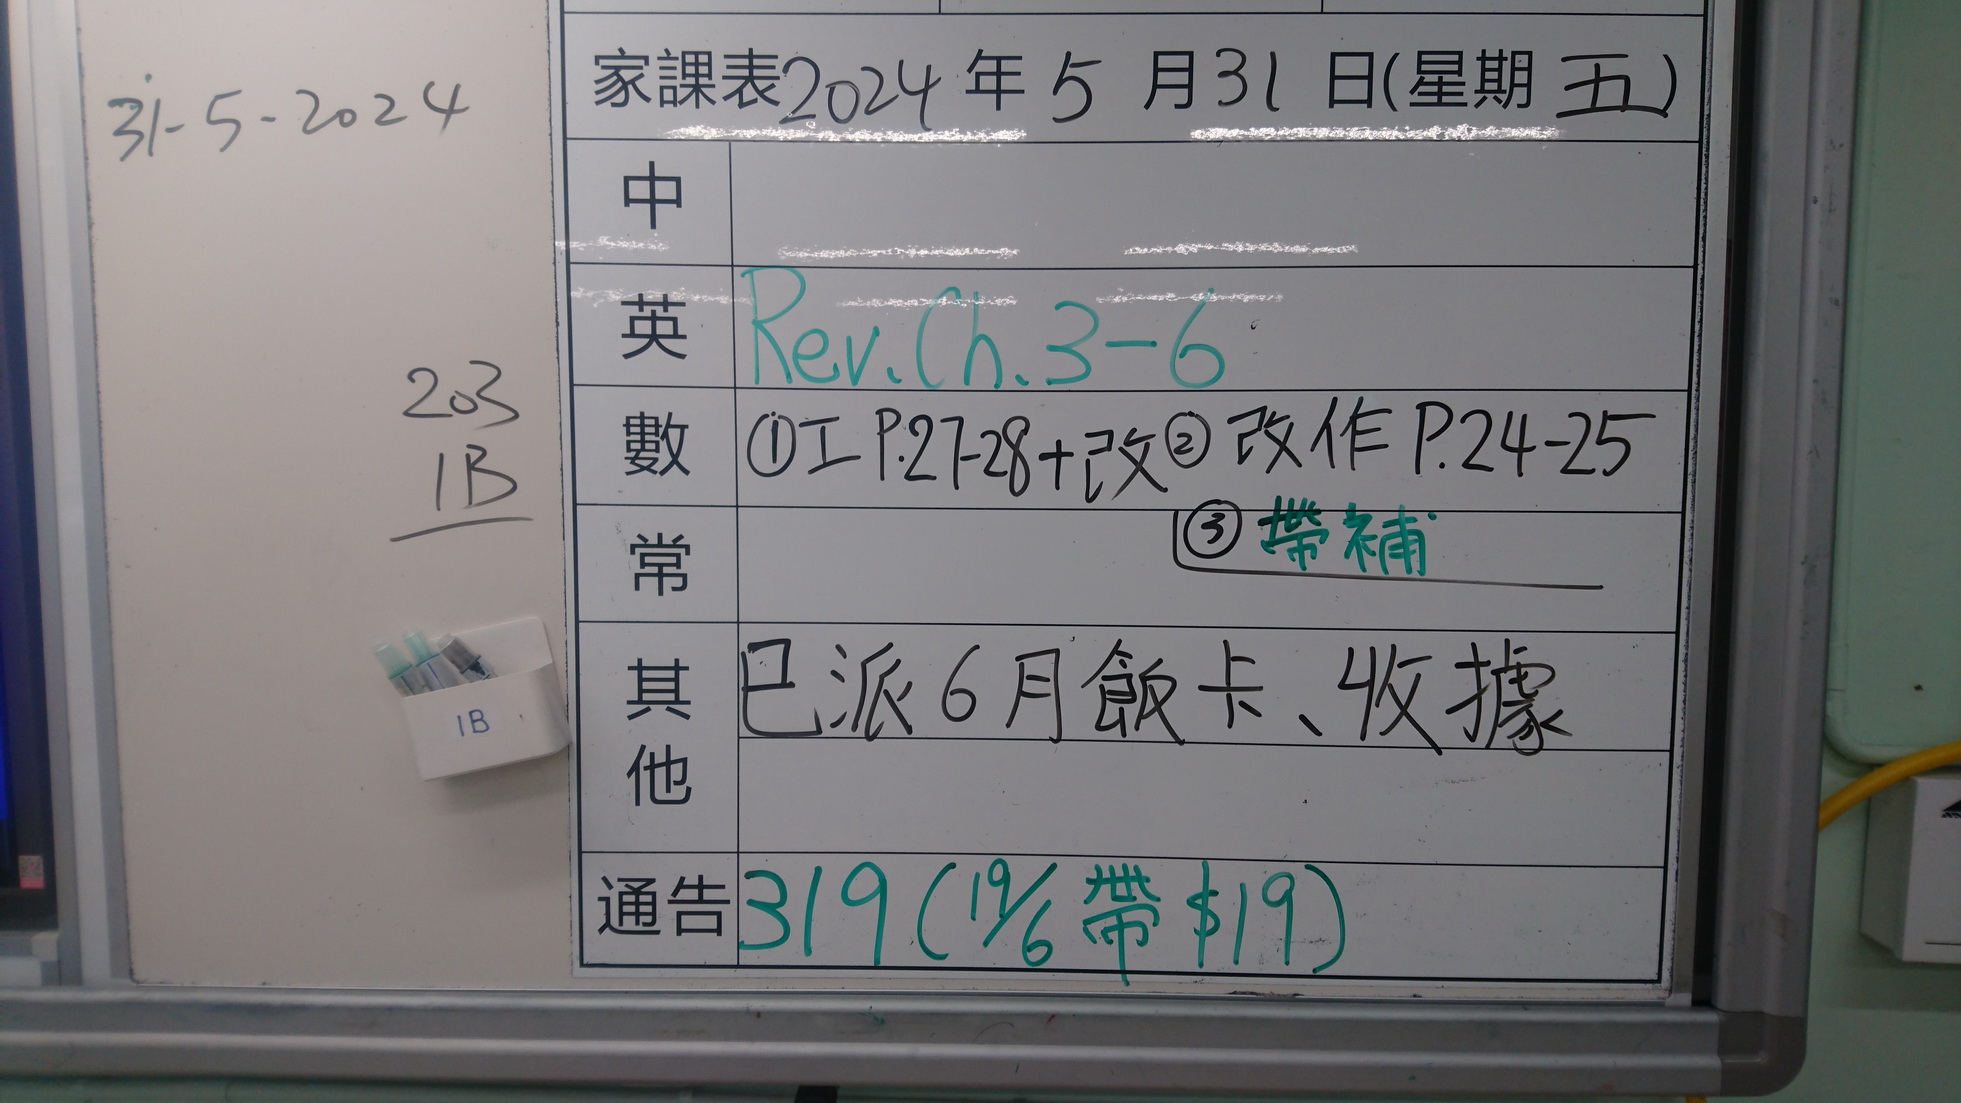 31-5-2024
203
1B
1B
家課表2024年5月31日(星期五)
中
英 Rev. Ch. 3-6
數 ①工 P.27-28+改 ② 改作 P.24-25
③ 帶補
常
其他 已派6月飯卡、收據
通告 319 (19/6 帶 $19)